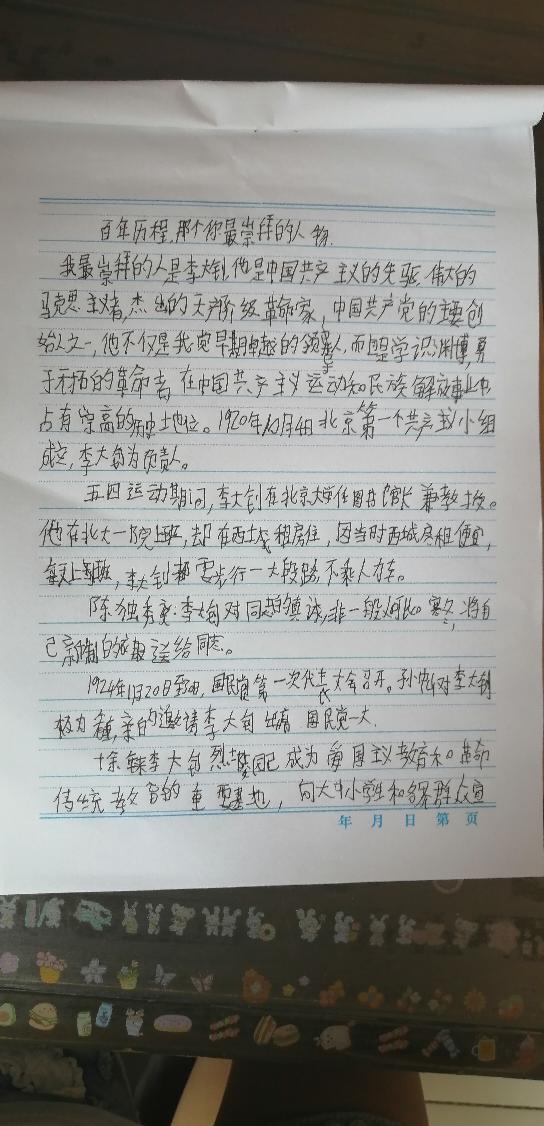 百年历程,那个你最崇拜的人物.
我最崇拜的人是李大钊,他是中国共产主义的先驱,伟大的
马克思主义者,杰出的无产阶级革命家,中国共产党的主要创
始人之一,他不仅是我党早期卓越的领导人,而且是学识渊博,勇
于开拓的革命者,在中国共产主义运动和民族解放事业中
占有崇高的历史地位。1920年10月4日北京第一个共产主义小组
成立,李大钊为负责人。
五四运动期间,李大钊在北京大学任图书馆长兼教授。
他在北大一院上班,却在西城租房住,因当时西城房租便宜,
每天上下班,李大钊都要步行一大段路,不乘人力车。
陈独秀 李大钊对同志的真诚,非一般人可比。寒冬,将自
己 的 送给同志。
1924年1月20日至30日,国民党第一次代表大会召开。孙中山对李大钊
极力 ,亲自邀请李大钊出席 国民党一大
十余年来李大钊烈士陵园已成为爱国主义教育和革命
传统教育的重要基地,向大中小学生和各界群众宣
年 月 日 第 页